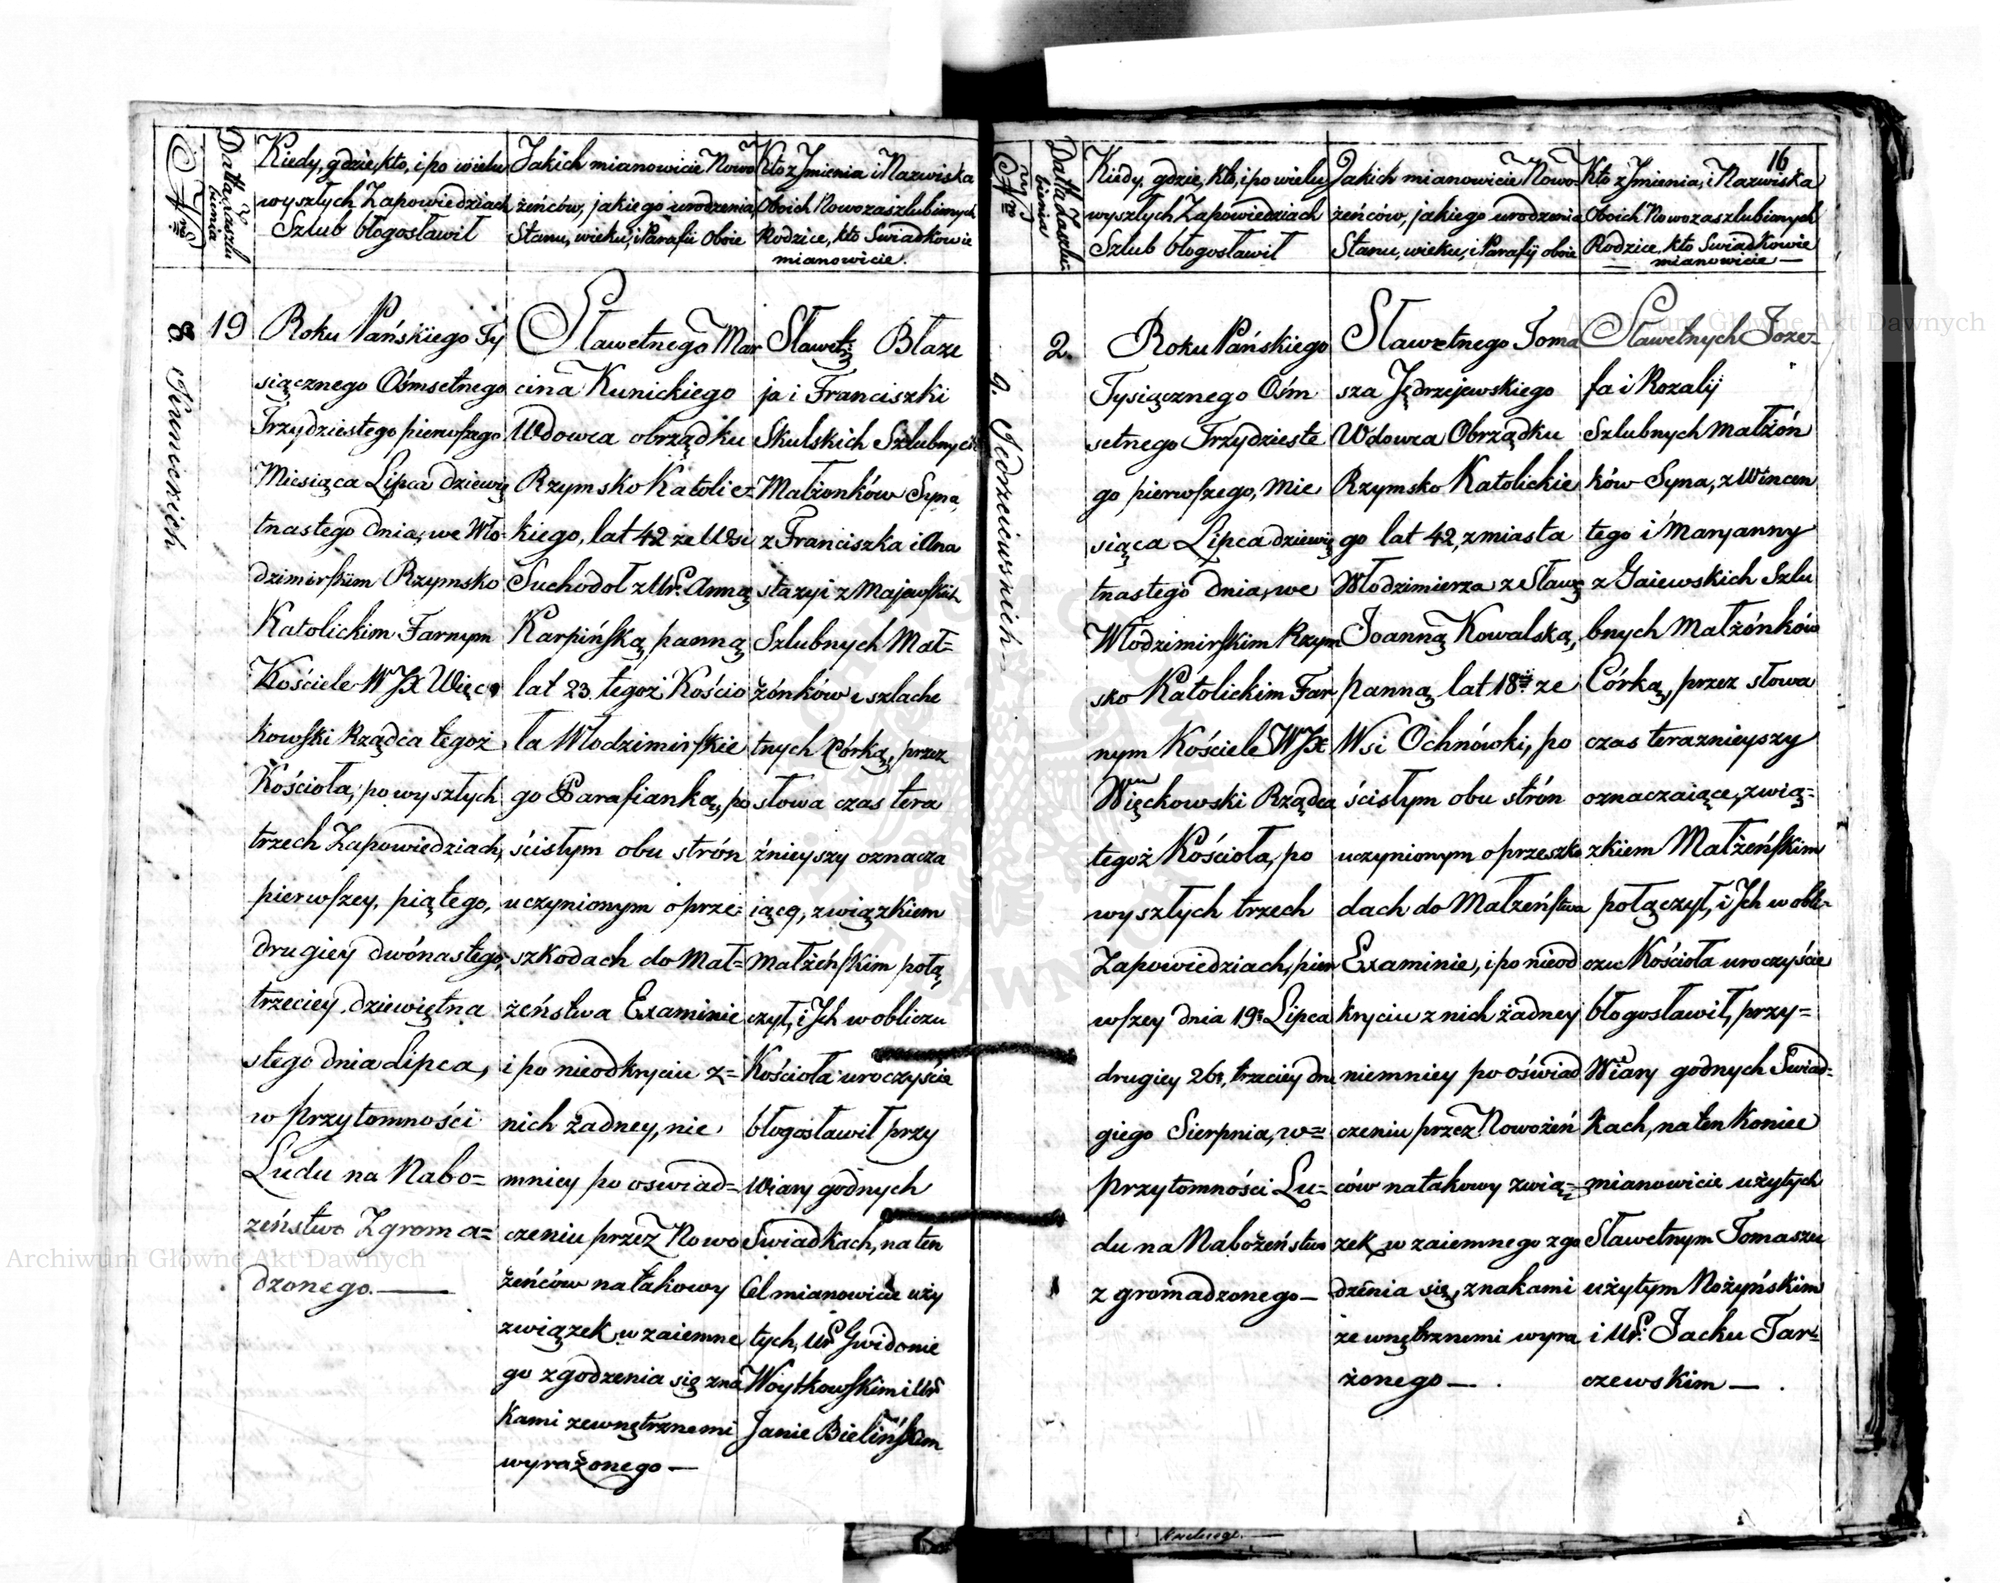 Nro
Datta zaszlu
bienia
Kiedy, gdzie, kto, i po wielu
wyszłych Zapowiedziach
Szlub błogosławił
Jakich mianowicie Nowo
żeńców, jakiego urodzenia
Stanu, wieku, i Parafii oboie
Kto z Jmienia i Nazwiska
Oboich Nowozaszlubionych
Rodzice, kto Swiadkowie
mianowicie.
8. Kunickich
19
Roku Pańskiego Ty
siącznego Ośmsetnego
Trzydziestego pierwszego
Miesiąca Lipca dziewię
tnastego dnia, we Wło-
dzimirskim Rzymsko
Katolickim Farnym
Kościele WJX Więc
kowski Rządca tegoż
Kościoła, po wyszłych
trzech Zapowiedziach,
pierwszey, piątego,
drugiey dwónastego,
trzeciey, dziewiętna
stego dnia Lipca,
w przytomności
Ludu na Nabo=
żeństwo Zgroma=
dzonego.
Sławetnego Mar
cina Kunickiego
Wdowca obrządku
Rzymsko Katolic-
kiego, lat 42 ze Wsi
Suchodoł z Ur. Anną
Karpińską, panną
lat 23 tegoż Kościo
ła Włodzimirskie
go Parafianką, po
ścisłym obu strón
uczynionym o prze
szkodach do Mał=
żeństwa Examinie
i po nieodkryciu z=
nich żadney, nie
mniey po oswiad=
czeniu przez Nowo
żeńców na takowy
związek wzaiemne
go zgodzenia się zna
kami zewnętrznemi
wyrażonego
Sławet: Błaze
ja i Franciszki
Skulskich Szlubnych
Małżonków Syna,
z Franciszka i Ana
stazyi z Majewskich
Szlubnych Mał=
żónków szlache
tnych Córką, przez
słowa czas tera
źnieyszy oznacza
iące, związkiem
Małżeńskim połą
czył, i Jch w obliczu
Kościoła uroczyście
błogosławił przy
Wiary godnych
Swiadkach, na ten
Cel mianowicie uży
tych, Ur Gwidonie
Woytkowskim i Ur
Janie Bielińskim
Nro
Datta Zaszlu
bienia
Kiedy, gdzie, kto, i po wielu
wyszłych Zapowiedziach
Szlub błogosławił
Jakich mianowicie Nowo-
żeńców, jakiego urodzenia
Stanu, wieku, i Parafij oboie
16
Kto z Jmienia, i Nazwiska
Oboich Nowozaszlubionych
Rodzice kto Swiadkowie
mianowicie
9. Jędrzeiewskich
2.
Roku Pańskiego
Tysiącznego Ośm
setnego Trzydzieste
go pierwszego, Mie
siąca Lipca dziewię
tnastego dnia, we
Włodzimirskim Rzym
sko Katolickim Far
nym Kościele WJX
Więckowski Rządca
tegoż Kościoła, po
wyszłych trzech
Zapowiedziach, pier
wszey dnia 19. Lipca
drugiey 26, trzeciey dru
giego Sierpnia, w=
przytomności Lu=
du na Nabożeństwo
zgromadzonego
Sławetnego Toma
sza Jędrzejewskiego
Wdowca Obrządku
Rzymsko Katolickie
go lat 42, z miasta
Włodzimierza z Sławę
Joanną Kowalską,
panną lat 18 ze
Wsi Ochnówki, po
ścisłym obu strón
uczynionym o przeszko
dach do Małżeństwa
Examinie, i po nieod
kryciu z nich żadney
niemniey po oświad
czeniu przez Nowożeń
ców na takowy zwią=
zek wzaiemnego zgo
dzenia się, znakami
zewnętrznemi wyra
żonego
Sławetnych Joze-
fa i Rozalij
Szlubnych małżón
ków Syna, z Wincen
tego i Maryanny
z Gaiewskich Szlu
bnych Małżónków
Córką, przez słowa
czas teraznieyszy
oznaczaiące, zwią-
zkiem Małżeńskim
połączył, i Jch w obli-
czu Kościoła uroczyście
błogosławił, przy=
Wiary godnych Swiad=
kach, na ten koniec
mianowicie użytych
Sławetnym Tomaszu
użytym Nożyńskim
i Ur. Jacku Tar=
czewskim
Archiwum Główne Akt Dawnych
Archiwum Główne Akt Dawnych